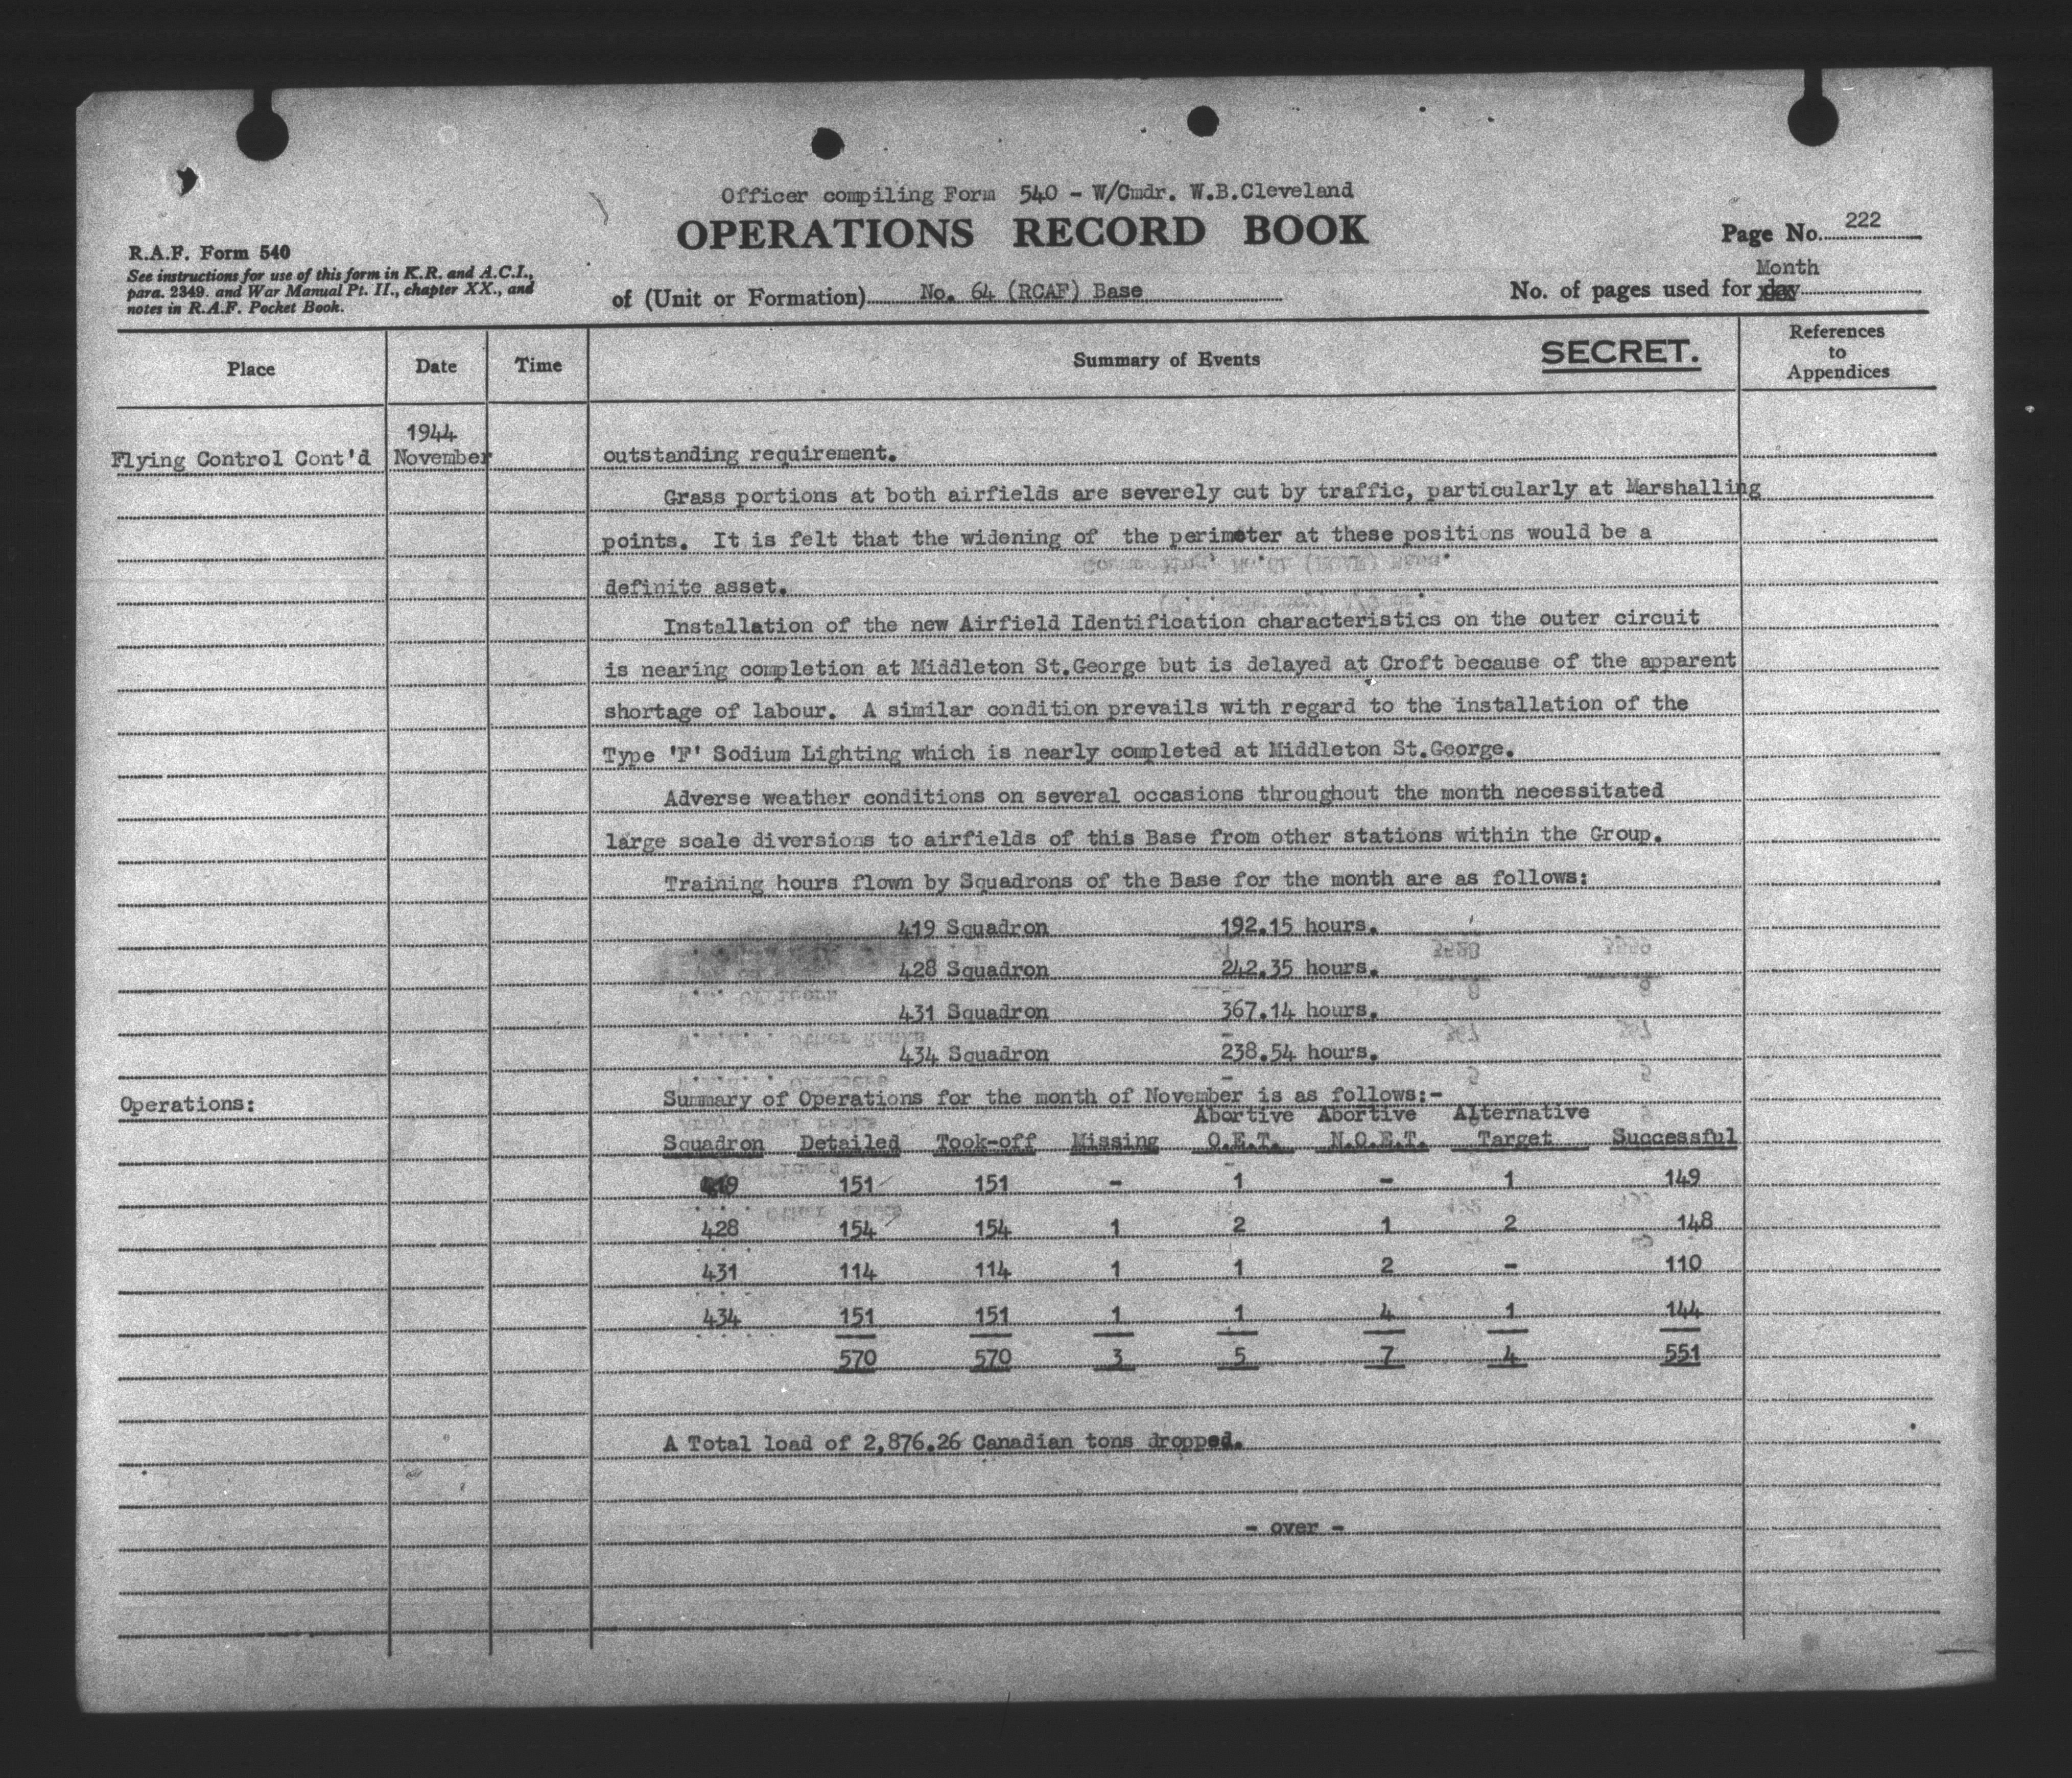 Officer compiling Form 540 - W/Cmdr. W.B.Cleveland
OPERATIONS RECORD BOOK
Page No. 222
R.A.F. Form 540
See instructions for use of this form in K.R. and A.C.I.,
para. 2349. and War Manual Pt. II., chapter XX., and
notes in R.A.F. Pocket Book.
of (Unit or Formation) No. 64 (RCAF) Base
Month
No. of pages used for day
Place Date Time Summary of Events SECRET. References
to
Appendices
1944
Flying Control Cont'd November outstanding requirement.
Grass portions at both airfields are severely cut by traffic, particularly at Marshalling
points. It is felt that the widening of the perimeter at these positions would be a
definite asset.
Installation of the new Airfield Identification characteristics on the outer circuit
is nearing completion at Middleton St.George but is delayed at Croft because of the apparent
shortage of labour. A similar condition prevails with regard to the installation of the
Type 'F' Sodium Lighting which is nearly completed at Middleton St.George.
Adverse weather conditions on several occasions throughout the month necessitated
large scale diversions to airfields of this Base from other stations within the Group.
Training hours flown by Squadrons of the Base for the month are as follows:
419 Squadron 192.15 hours.
428 Squadron 242.35 hours.
431 Squadron 367.14 hours.
434 Squadron 238.54 hours.
Operations: Summary of Operations for the month of November is as follows:-
Abortive Abortive Alternative
Squadron Detailed Took-off Missing O.E.T. N.O.E.T. Target Successful
419 151 151 - 1 - 1 149
428 154 154 1 2 1 2 148
431 114 114 1 1 2 - 110
434 151 151 1 1 4 1 144
570 570 3 5 7 4 551
A Total load of 2,876.26 Canadian tons dropped.
- over -